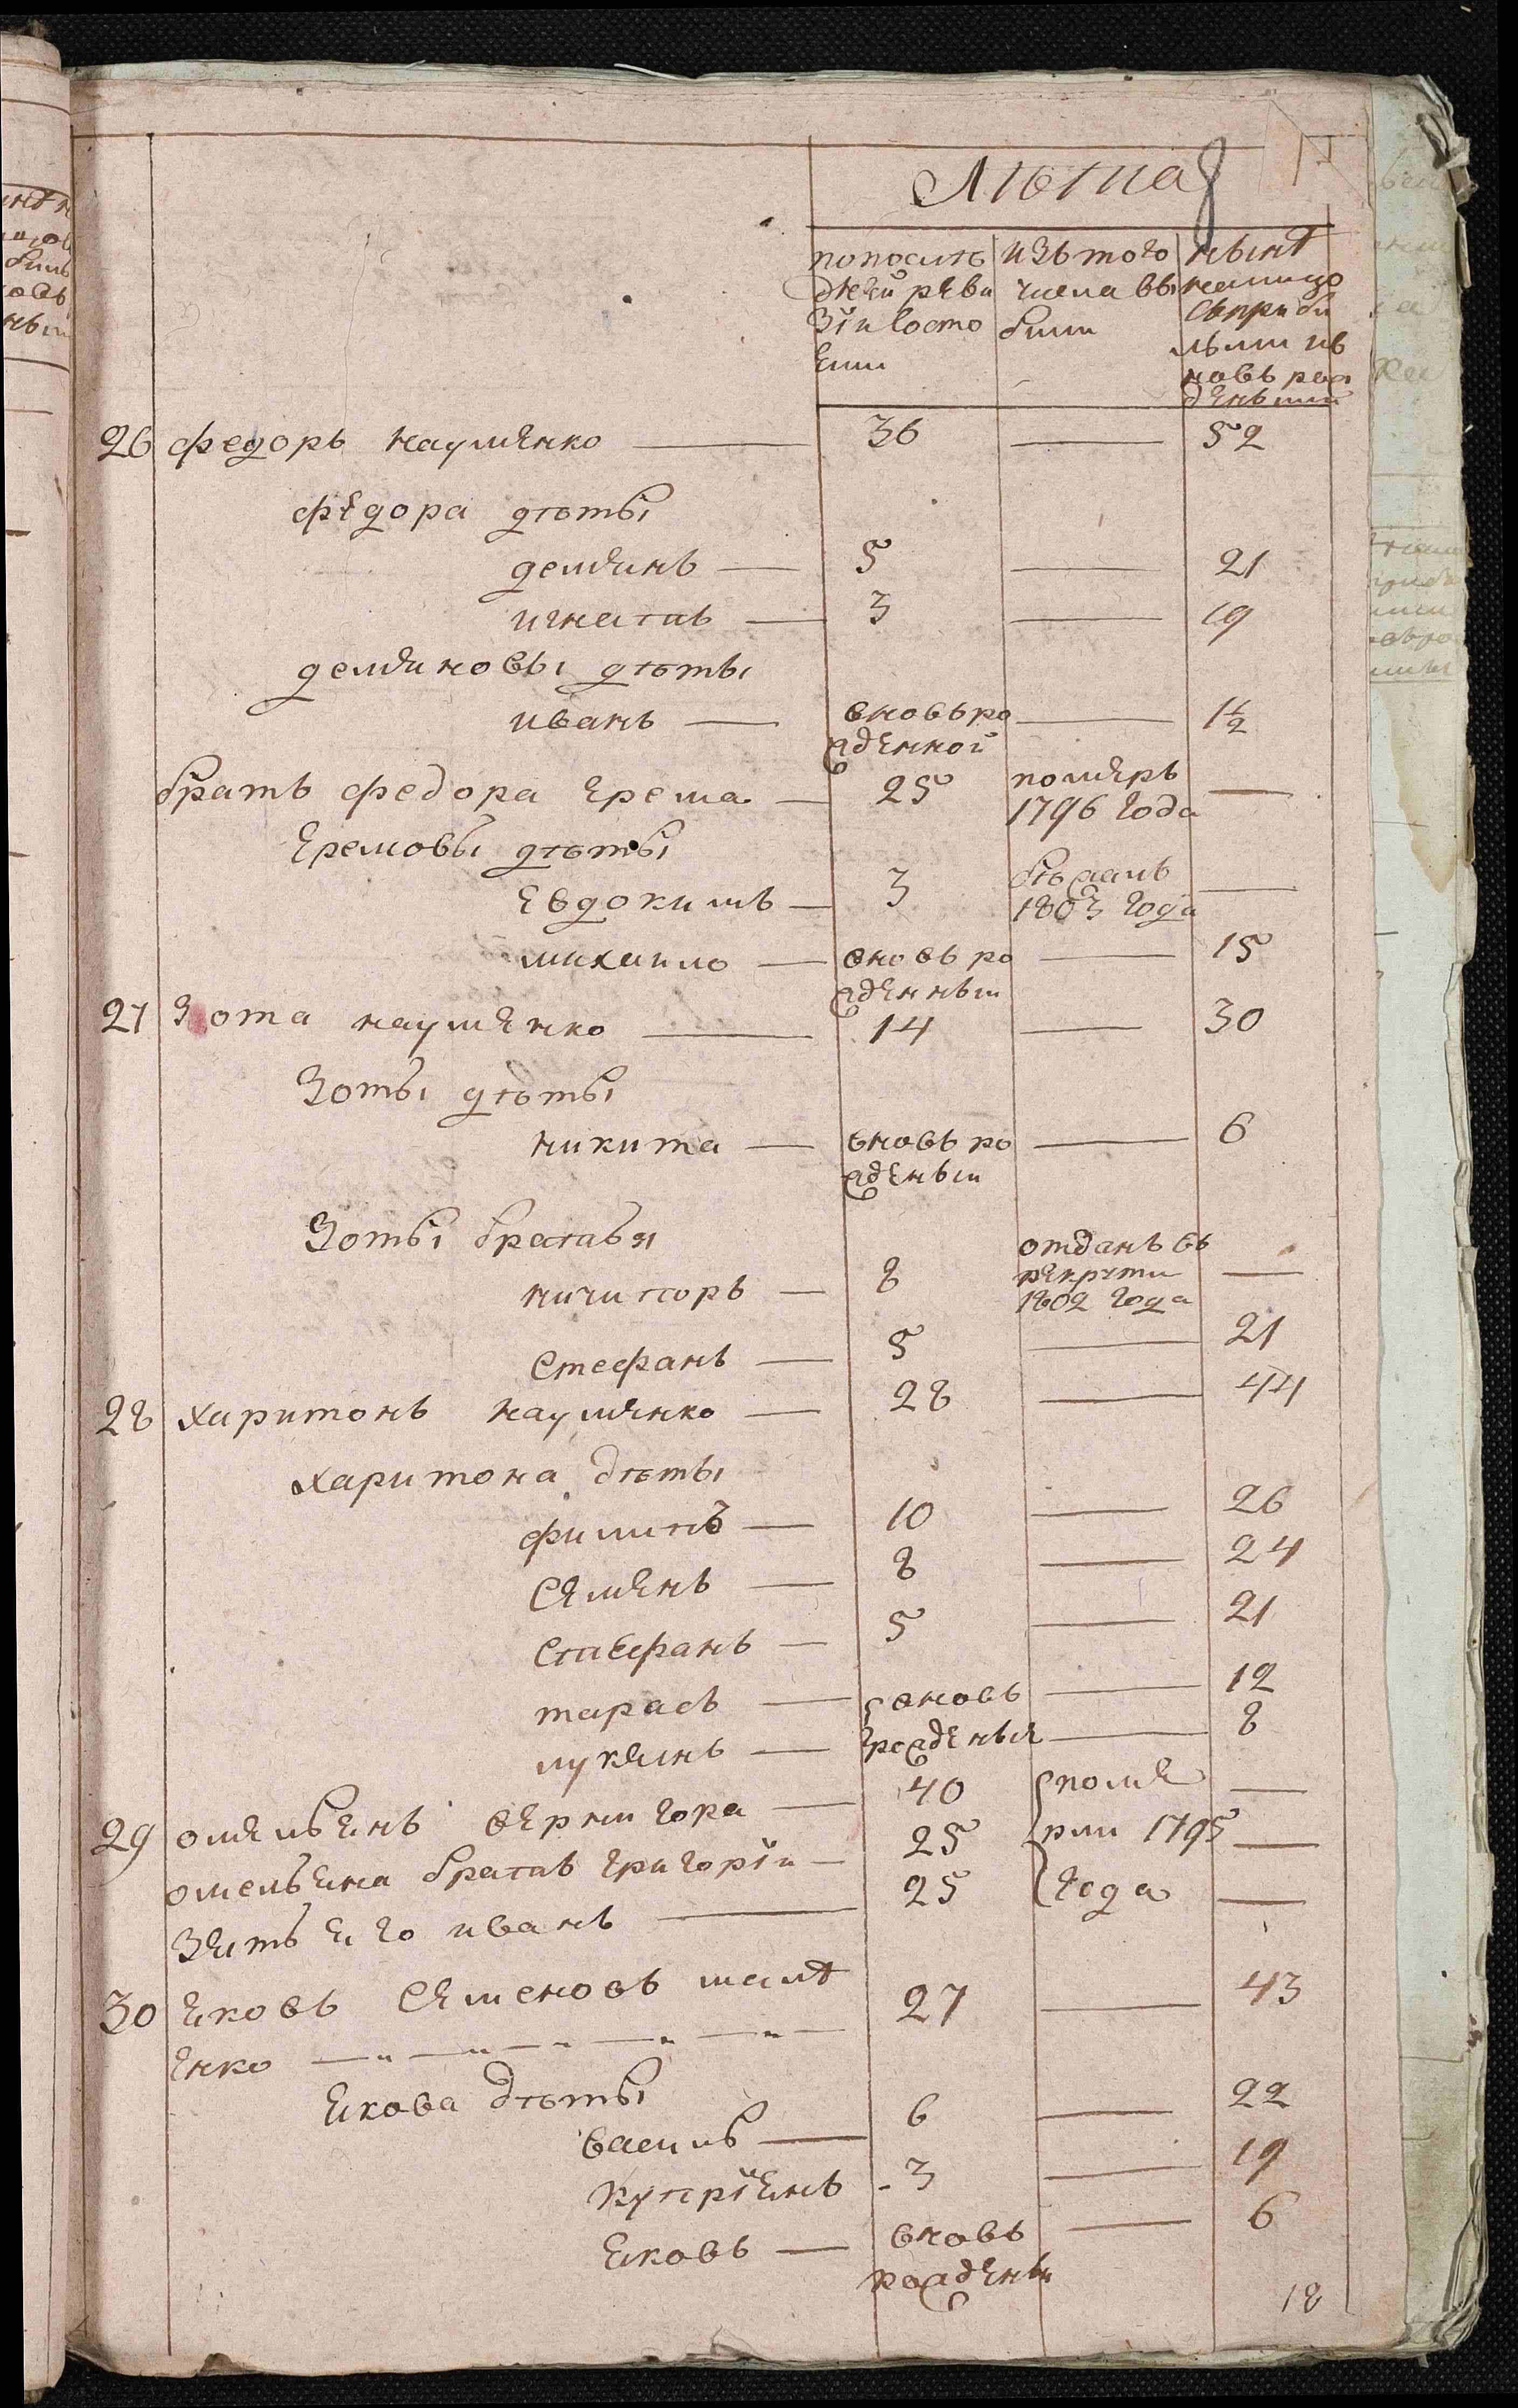 Лѣта
8
попослѣ
дней реви
зіи состо
яли
изъ того
числа вы
были
нынѣ
налицо
съприбы
лыми ив
новь рож
денными
26 федоръ Науменко — 36 — 52
фёдора дѣты
демянъ — 5 — 21
игнатъ — 3 — 19
демяновы дѣты
иванъ — вновьро — 1½
жденной
братъ федора ерема — 25 померъ —
1796 года
Еремовы дѣты
Евдокимъ — 3 бѣжалъ —
1803 года
михаило — вновь ро — 15
жденный
27 Зота науменко — 14 — 30
Зоты дѣты
никита — вновь ро — 6
жденый
Зоты братья
ничипоръ — 8 отданъ въ —
рекруты
1802 года
Стефанъ — 5 — 21
28 харитонъ Науменко — 28 — 44
харитона дѣты
филипъ — 10 — 26
Семенъ — 8 — 24
Стефанъ — 5 — 21
тарасъ — вновь — 12
лукянъ — рожденыя — 8
29 омельянъ вернигора — 40 поме —
омельяна братъ григорій — 25 рли 1795 —
Зять его иванъ — 25 года —
30 Яковъ Семеновъ шапѣ 27 — 43
енко — „ — „ — „ — „ —
Якова дѣты
василь — 6 — 22
Купріянъ - 3 — 19
Яковъ — вновь — 6
рожденый
18